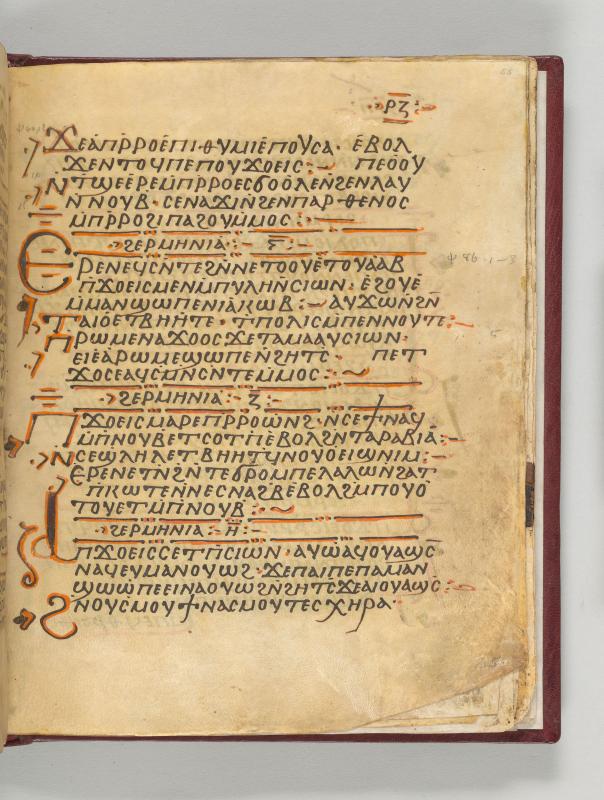 ⲣ̅ⲍ̅
ϫⲉⲁⲡⲣ̄ⲣⲟⲉⲡⲓⲑⲩⲙⲓ ⲉⲡⲟⲩⲥⲁ · ⲉⲃⲟⲗ
ϫⲉⲛⲧⲟϥ ⲡⲉ ⲡⲟⲩϫⲟⲉⲓⲥ :– ⲡⲉⲟⲟⲩ
ⲛ̄ⲧϣⲉⲉⲣⲉ ⲙ̄ⲡⲣ̄ⲣⲟ ⲉⲥϭⲟⲟⲗⲉ ⲛ̄ϩⲉⲛⲗⲁⲩ
ⲛ̄ⲛⲟⲩⲃ · ⲥⲉⲛⲁϫⲓ ⲛ̄ϩⲉⲛⲡⲁⲣⲑⲉⲛⲟⲥ
ⲙ̄ⲡⲣ̄ⲣⲟ ϩⲓⲡⲁϩⲟⲩ ⲙ̄ⲙⲟⲥ :–
ϩⲉⲣⲙⲏⲛⲓⲁ :– ⲋ̄ :–
ⲉⲣⲉⲛⲉϥⲥⲛ̄ⲧⲉ ϩⲛ̄ⲛⲉⲧⲟⲟⲩ ⲉⲧⲟⲩⲁⲁⲃ
ⲡϫⲟⲉⲓⲥ ⲙⲉ ⲛⲙ̄ⲡⲩⲗⲏ ⲛ̄ⲥⲓⲱⲛ · ⲉϩⲟⲩⲉ
ⲙ̄ⲙⲁⲛϣⲱⲡⲉ ⲛ̄ⲓⲁⲕⲱⲃ :– ⲁⲩϫⲱ ⲛ̄ϩⲛ̄
ⲧⲁⲓⲟ ⲉⲧⲃⲏⲏⲧⲉ · ⲧⲡⲟⲗⲓⲥ ⲙ̄ⲡⲉⲛⲛⲟⲩⲧⲉ :
ⲡⲣⲱⲙⲉ ⲛⲁϫⲟⲟⲥ ϫⲉ ⲧⲁⲙⲁⲁⲩ ⲥⲓⲱⲛ :
ⲉⲓⲉ ⲁⲣⲱⲙⲉ ϣⲱⲡⲉ ⲛ̄ϩⲏⲧⲥ · ⲡⲉⲧ
ϫⲟⲥⲉ ⲁϥⲥⲙ̄ⲛ̄ⲥⲛ̄ⲧⲉ ⲙ̄ⲙⲟⲥ :
ϩⲉⲣⲙⲏⲛⲓⲁ :– ⲍ̄ :–
ⲡϫⲟⲉⲓⲥ ⲙⲁⲣⲉⲡⲣ̄ⲣⲟ ⲱⲛϩ · ⲛ̄ⲥⲉϯⲛⲁϥ
ⲙ̄ⲡⲛⲟⲩⲃ ⲉⲧⲥⲟⲧⲡ̄ ⲉⲃⲟⲗ ϩⲛ̄ⲧⲁⲣⲁⲃⲓⲁ :–
ⲛ̄ⲥⲉϣⲗⲏⲗ ⲉⲧⲃⲏⲏⲧϥ ⲛⲟⲩⲟⲉⲓϣ ⲛⲓⲙ :–
ⲉⲣⲉⲛⲉⲧⲛ̄ϩ ⲛ̄ⲧⲉϭⲣⲟⲙⲡⲉ ⲗⲁⲗⲱ ⲛ̄ϩⲁⲧ
ⲡⲕⲱⲧⲉ ⲛ̄ⲛⲉⲥⲛⲁϩⲃ ⲉⲃⲟⲗ ϩⲙ̄ⲡⲟⲩⲟ
ⲧⲟⲩⲉⲧ ⲙ̄ⲡⲛⲟⲩⲃ :
ϩⲉⲣⲙⲏⲛⲓⲁ :– ⲏ̄ :–
ⲁⲡϫⲟⲉⲓⲥ ⲥⲉⲧⲡ̄ⲥⲓⲱⲛ · ⲁⲩⲱ ⲁϥⲟⲩⲁϣⲥ̄
ⲛⲁϥ ⲉⲩⲙⲁⲛⲟⲩⲱϩ · ϫⲉ ⲡⲁⲓ ⲡⲉ ⲡⲁⲙⲁⲛ
ϣⲱⲡⲉ ⲉⲓⲛⲁⲟⲩⲱϩ ⲛ̄ϩⲏⲧϥ ϫⲉ ⲁⲓⲟⲩⲁϣϥ :
ϩⲛⲟⲩⲥⲙⲟⲩ ϯⲛⲁⲥⲙⲟⲩ ⲧⲉⲥⲭⲏⲣⲁ ·
ψ 86 · 1–3